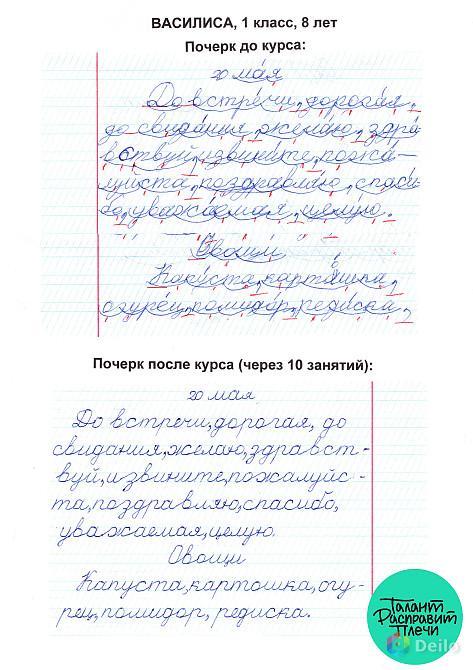 ВАСИЛИСА, 1 класс, 8 лет
Почерк до курса:
20 мая
До встречи, дорогая,
до свидания, желаю, здра
вствуй, извините, пожа-
луйста, поздравляю, спаси
бо, уважаемая, целую.
Овощи
Капуста, картошка,
огурец, помидор, редиска,
Почерк после курса (через 10 занятий):
20 мая
До встречи, дорогая, до
свидания, желаю, здравст-
вуй, извините, пожалуйс-
та, поздравляю, спасибо,
уважаемая, целую.
Овощи
Капуста, картошка, огу-
рец, помидор, редиска.
Талант
Расправит
Плечи
Deilo